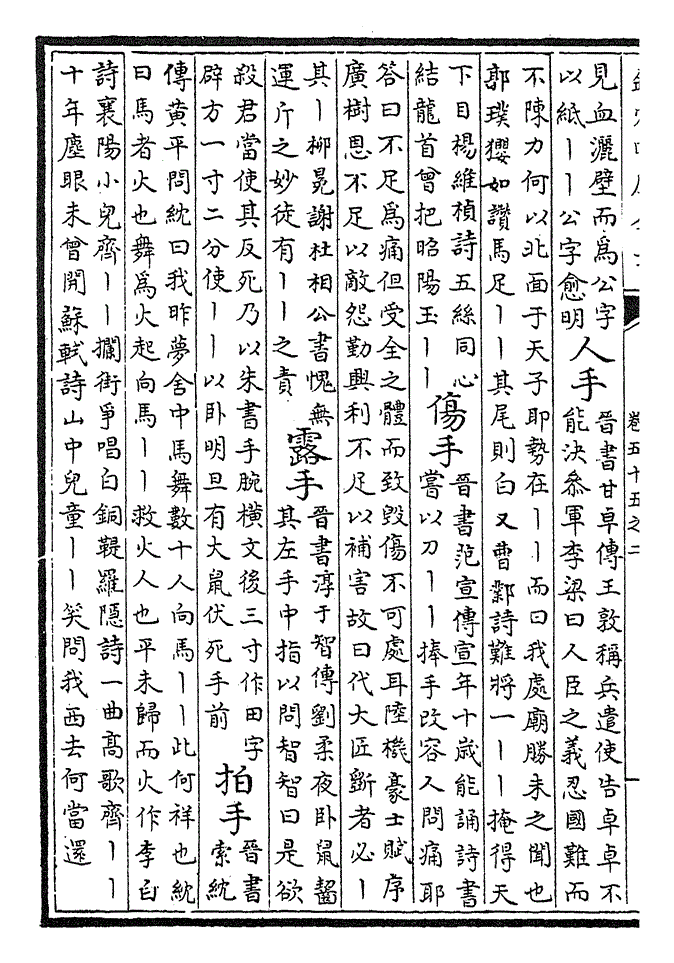 卷五十五之二
見血灑壁而為公字
以紙丨丨公字愈明
人手
晉書甘卓傳王敦稱兵遣使告卓卓不
能決叅軍李梁曰人臣之義忍國難而
不陳力何以北面于天子耶勢在丨丨而曰我處廟勝未之聞也
郭璞玃如讚馬足丨丨其尾則白又曹鄴詩難將一丨丨掩得天
下目楊維楨詩五絲同心
結龍首曾把昭陽玉丨丨
傷手
晉書范宣傳宣年十歲能誦詩書
嘗以刀丨丨捧手改容人問痛耶
答曰不足為痛但受全之體而致毀傷不可處耳陸機豪士賦序
廣樹恩不足以敵怨勤興利不足以補害故曰代大匠斲者必丨
其丨柳冕謝杜相公書愧無
運斤之妙徒有丨丨之責
露手
晉書淳于智傳劉柔夜卧鼠齧
其左手中指以問智智曰是欲
殺君當使其反死乃以朱書手腕橫文後三寸作田字
辟方一寸二分使丨丨以卧明旦有大鼠伏死手前
拍手
晉書
索紞
傳黃平問紞曰我昨夢舍中馬舞數十人向馬丨丨此何祥也紞
曰馬者火也舞為火起向馬丨丨救火人也平未歸而火作李白
詩襄陽小兒齊丨丨攔街爭唱白銅鞮羅隱詩一曲高歌齊丨丨
十年塵眼未曾開蘇軾詩山中兒童丨丨笑問我西去何當還